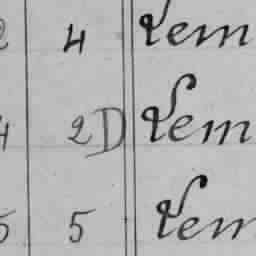 2 4 Tem
4 2D Tem
5 5 Tem